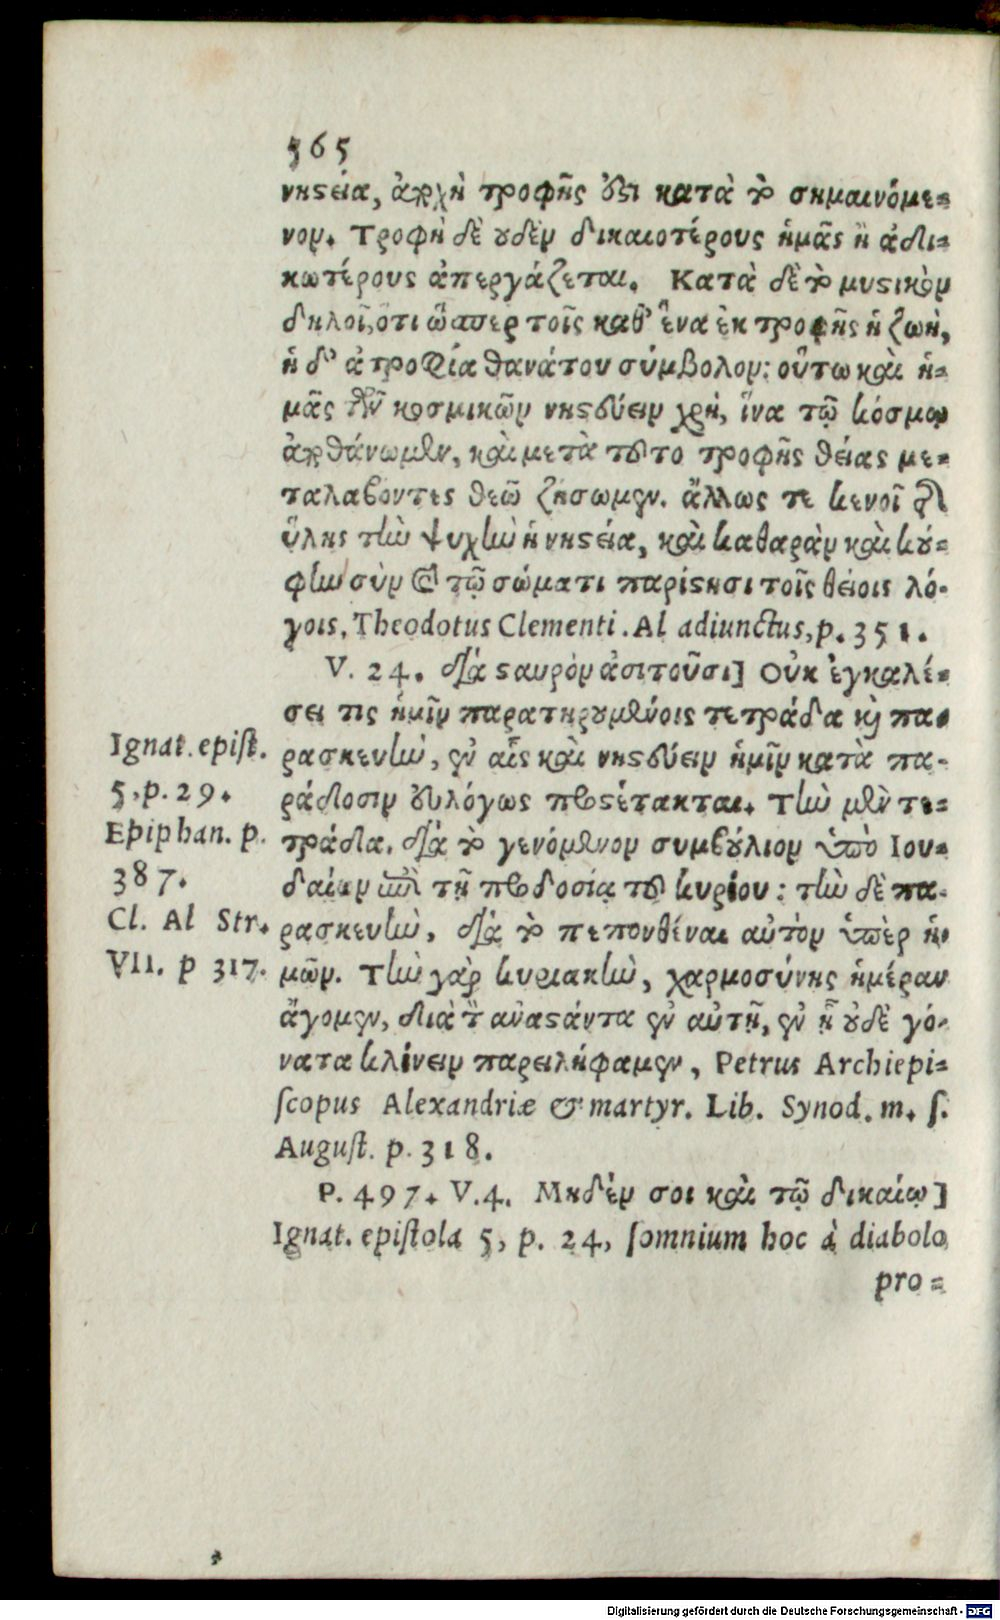 565
νηϛεία, ἀρχὴ τροφῆς ὅϛι κατὰ τὸ σημαινόμε=
νον. Τροφὴ δὲ ȣδὲν δικαιοτέρους ἡμᾶς ἢ ἀδι=
κωτέρους ἀπεργάζεται. Κατὰ δὲ τὸ μυϛικὸν
δηλοῖ, ὅτι ὥσπερ τοῖς καθ' ἕνα ἐκ τροφῆς ἡ ζωὴ,
ἡ δ' ἀτροφία θανάτου σύμβολον: οὕτω καὶ ἡ=
μᾶς τῶν κοσμικῶν νηϛεύειν χρὴ, ἵνα τῷ κόσμῳ
ἀρθάνωμεν, καὶ μετὰ τȣτο τροφῆς θείας με=
ταλαβόντες θεῷ ζήσωμεν. ἄλλως τε κενοῖ τ
ὕλης τὴν ψυχὴν ἡ νηϛεία, καὶ καθαρὰν καὶ κȣ́=
φην σὺν τῷ σώματι παρίϛησι τοῖς θείοις λό-
γοις, Theodotus Clementi. Al adiunctus, p. 351.
V. 24. διὰ ϛαυρὸν ἀσιτοῦσι] Οὐκ ἐγκαλέ=
σει τις ἡμῖν παρατηρȣμένοις τετράδα κὶ πα=
ρασκευὴν, ἐν αἷς καὶ νηϛεύειν ἡμῖν κατὰ πα-
ράδοσιν εὐλόγως προϛέτακται. Τὴν μὲν τε=
τράδα, διὰ τὸ γενόμενον συμβȣ́λιον ὑπὸ Ιου=
δαίων ἐπὶ τῇ προδοσίᾳ τȣ κυρίου: τὴν δὲ πα-
ρασκευὴν, διὰ τὸ πεπονθέναι αὐτὸν ὑπὲρ ἡ=
μῶν. Τὴν γὰρ κυριακὴν, χαρμοσύνης ἡμέραν
ἄγομεν, διὰ τ ἀναϛάντα ἐν αὐτῇ, ἐν ᾗ ȣδὲ γό-
νατα κλίνειν παρειλήφαμεν, Petrus Archiepi=
ſcopus Alexandriæ & martyr. Lib. Synod. m. ſ.
Auguſt. p. 318.
P. 497. V. 4. Μηδὲν σοι καὶ τῷ δικαίῳ]
Ignat. epiſtola 5, p. 24, ſomnium hoc à diabolo
pro=
Ignat. epiſt.
5, p. 29.
Epiphan. p.
387.
Cl. Al Str.
VII. p 317.
Digitalisierung gefördert durch die Deutsche Forschungsgemeinschaft - DFG